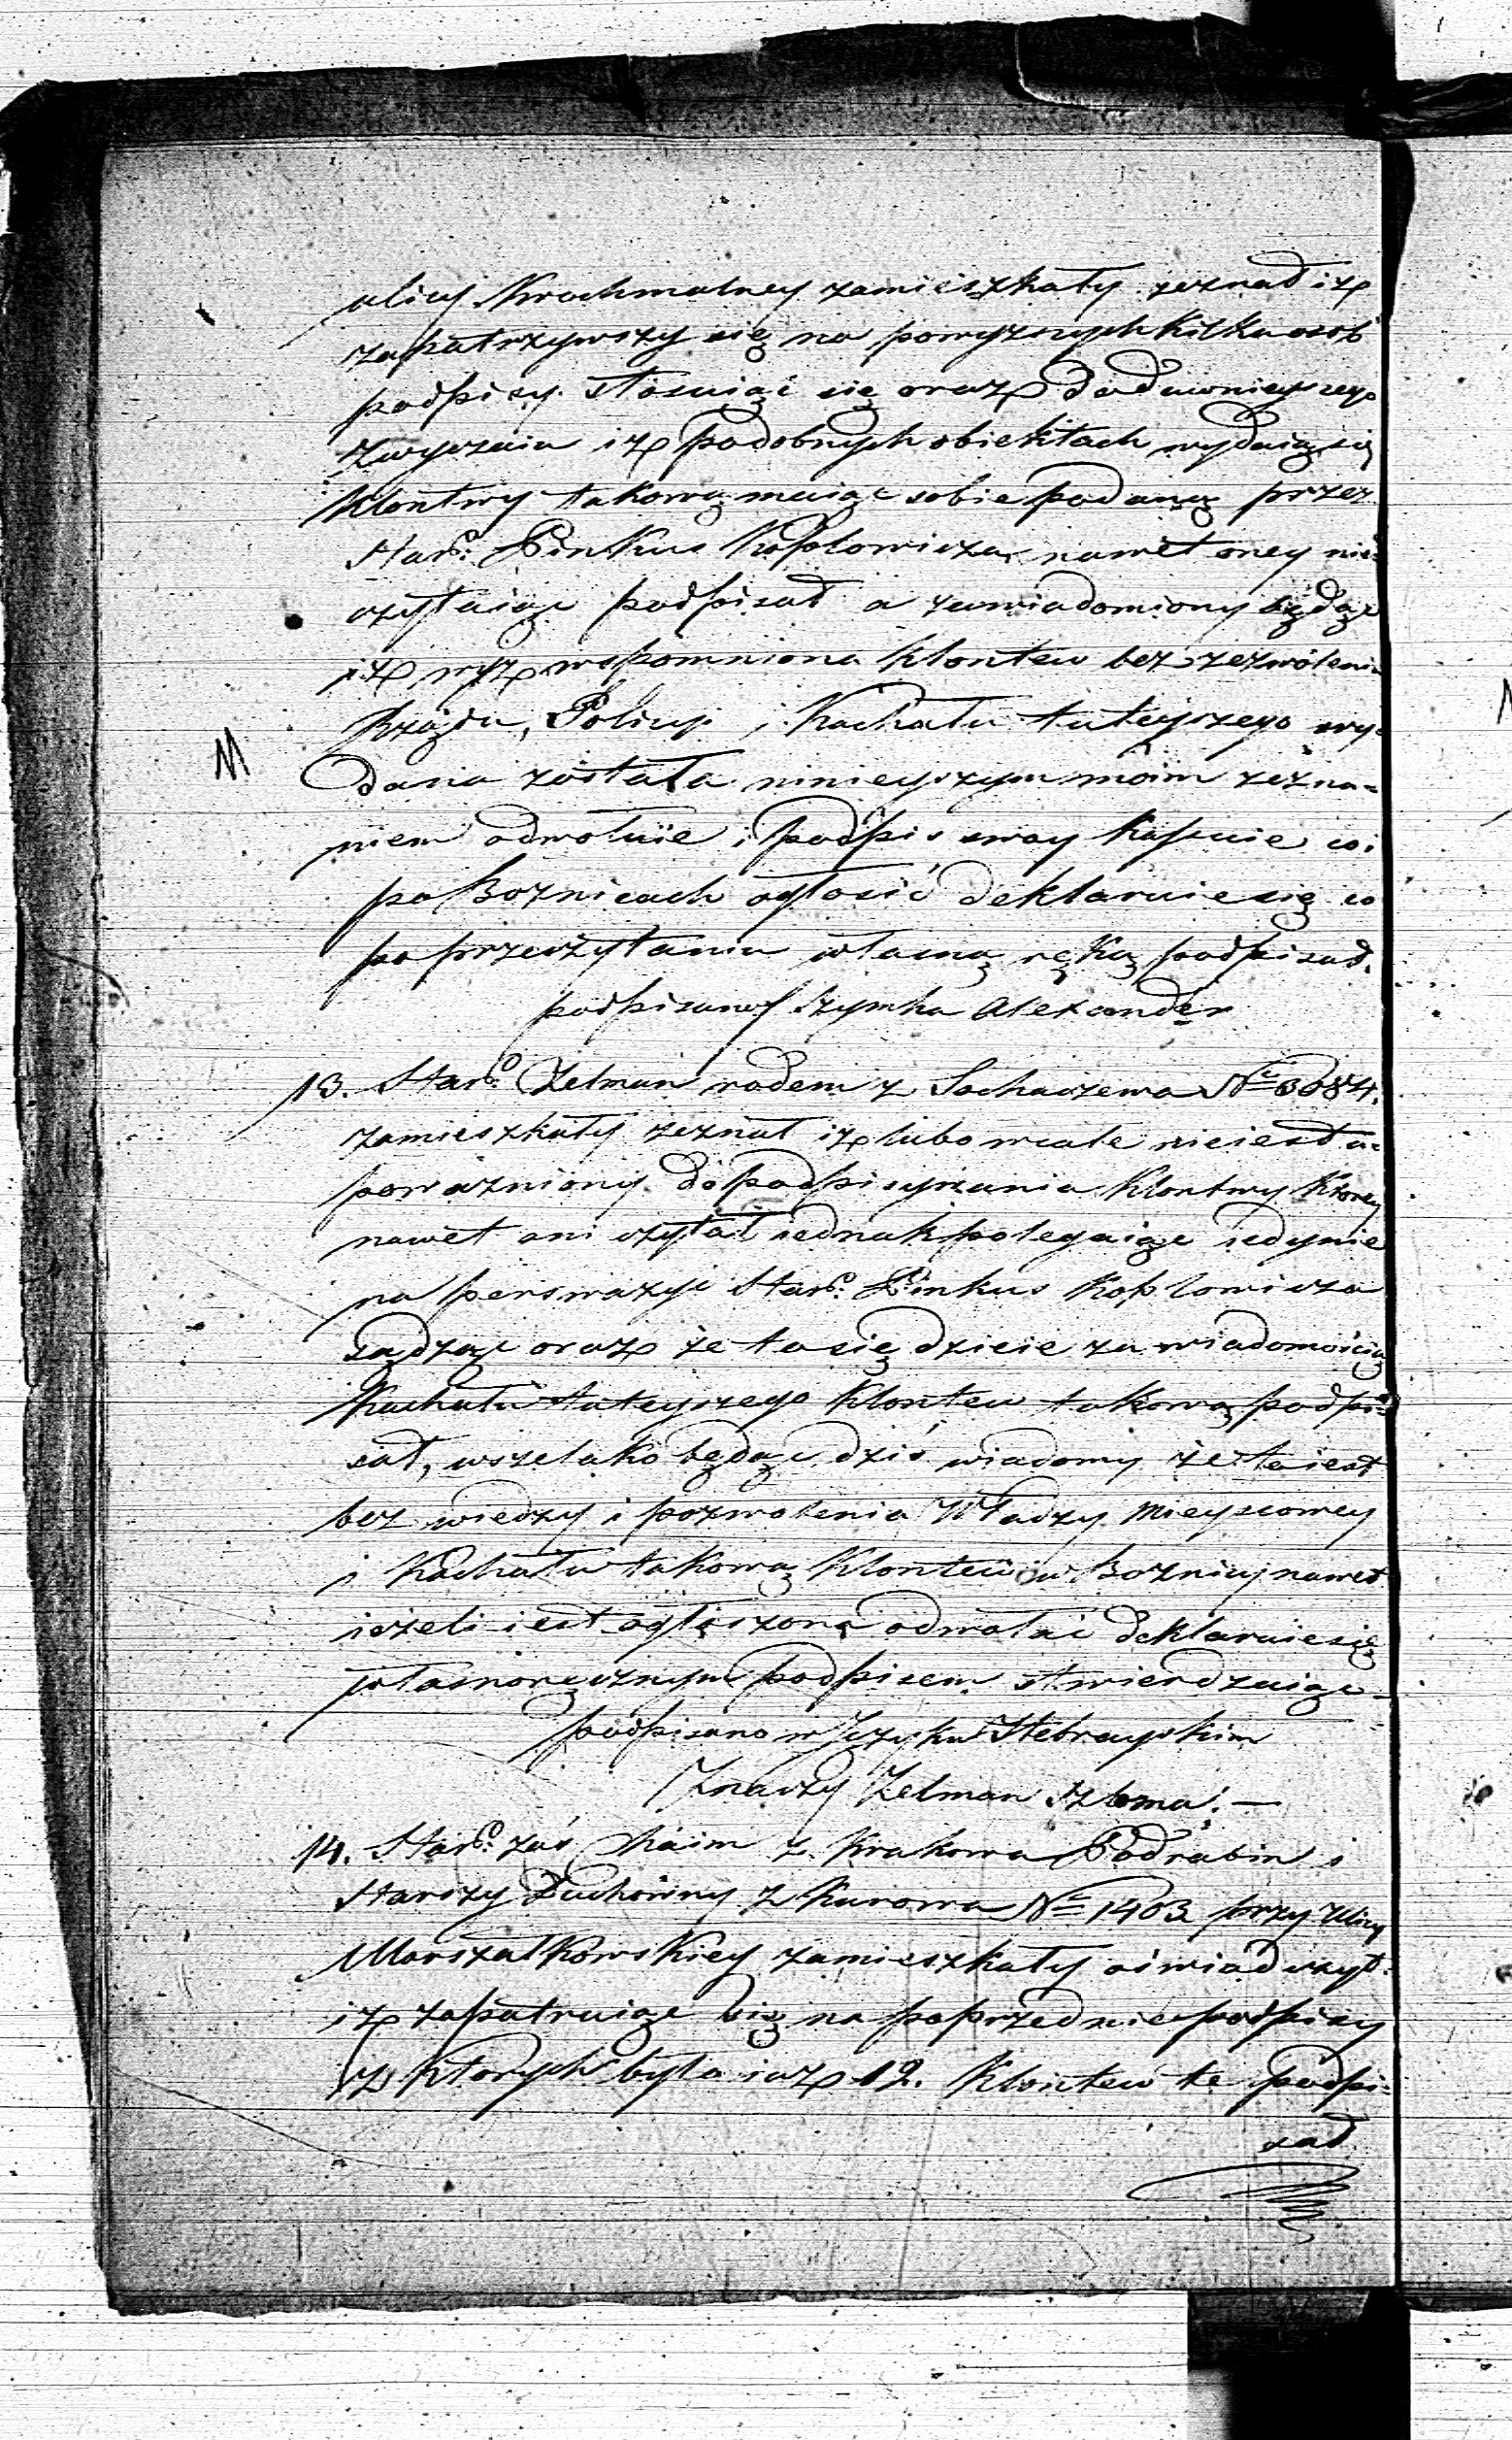 ulicy Krochmalney zamieszkały zeznał iż
zapatrzywszy się na powyższych kilka osób
podpisy stosuiąc się oraz do dawnieyszego
zwyczaiu iż podobnych obiektach wydaią się
Klontwy takową maiąc sobie podaną przez
Star: Pinkus Koplowicza nawet oney nie
czytaiąc podpisał a zawiadomiony będąc
iż wyż wspomniona klontew bez zezwolenia
Rządu, Policyi i Kachału tuteyszego wy-
dana została ninieyszym moim zezna-
niem odwołuie i podpis swoy kassuie co i
po Boznicach ogłosić deklaruie się co
po przeczytaniu własną ręką podpisał.
podpisano Szymha Alexander
13. Star: Zelman rodem z Sochaczewa No 3084.
zamieszkały zeznał iż lubo wcale nieiest u-
poważniony do podpisywania Klontwy którey
nawet ani czytał iednak polegaiąc iedynie
na perswazyi Star: Pinkus Koplowicza
sądząc oraz że to się dzieie za wiadomością
Kachału tuteyszego Klontew takową podpi-
sał, wszelako będąc dziś wiadomy że to iest
bez wiedzy i pozwolenia Władzy Mieyscowey
i Kachału takową Klontew w Boznicy nawet
ieżeli iest ogłoszona odwołać deklaruie się
własnoręcznym podpisem stwierdzaiąc
podpisano w Języku Hebrayskim
Znaczy Zelman Szloma. —
14. Star: zaś Chaim z Krakowa Podrabin i
Starszy Duchowny z Kurowa No 1403 przy Ulicy
Marszałkowskiey zamieszkały oświadczył
iż zapatruiąc się na poprzednie podpisy
z których było iuż 12. Klontew te podpi-
sał